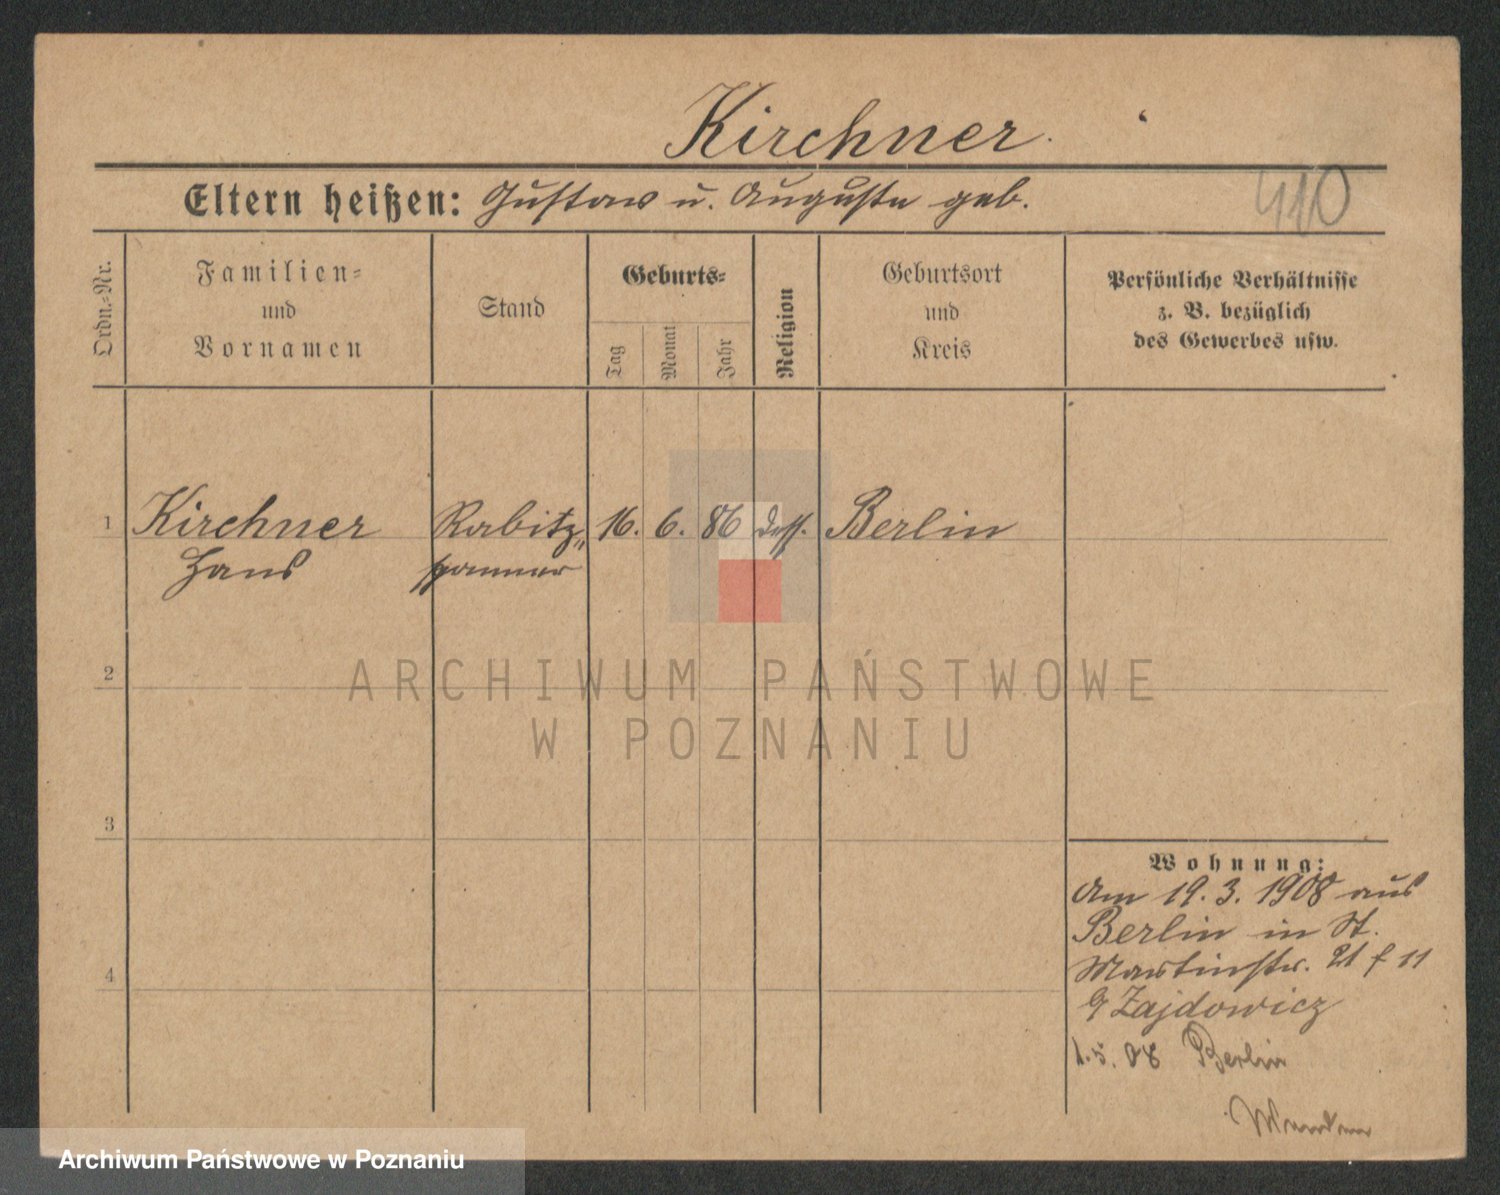 Kirchner.
410
Eltern heißen: Gustav u. Auguste geb.
Ordn.-Nr.
Familien-
und
Vornamen
Stand
Geburts-
Tag
Monat
Jahr
Religion
Geburtsort
und
Kreis
Persönliche Verhältnisse
z. B. bezüglich
des Gewerbes usw.
1 Kirchner Rabitz„ 16. 6. 86 diss. Berlin
Hans spanner
2
3
4
Wohnung:
Am 19. 3. 1908 aus
Berlin in St.
Martinstr. 21 f 11
Zajdowicz
1. 5. 08 Berlin
ARCHIWUM PAŃSTWOWE
W POZNANIU
Archiwum Państwowe w Poznaniu